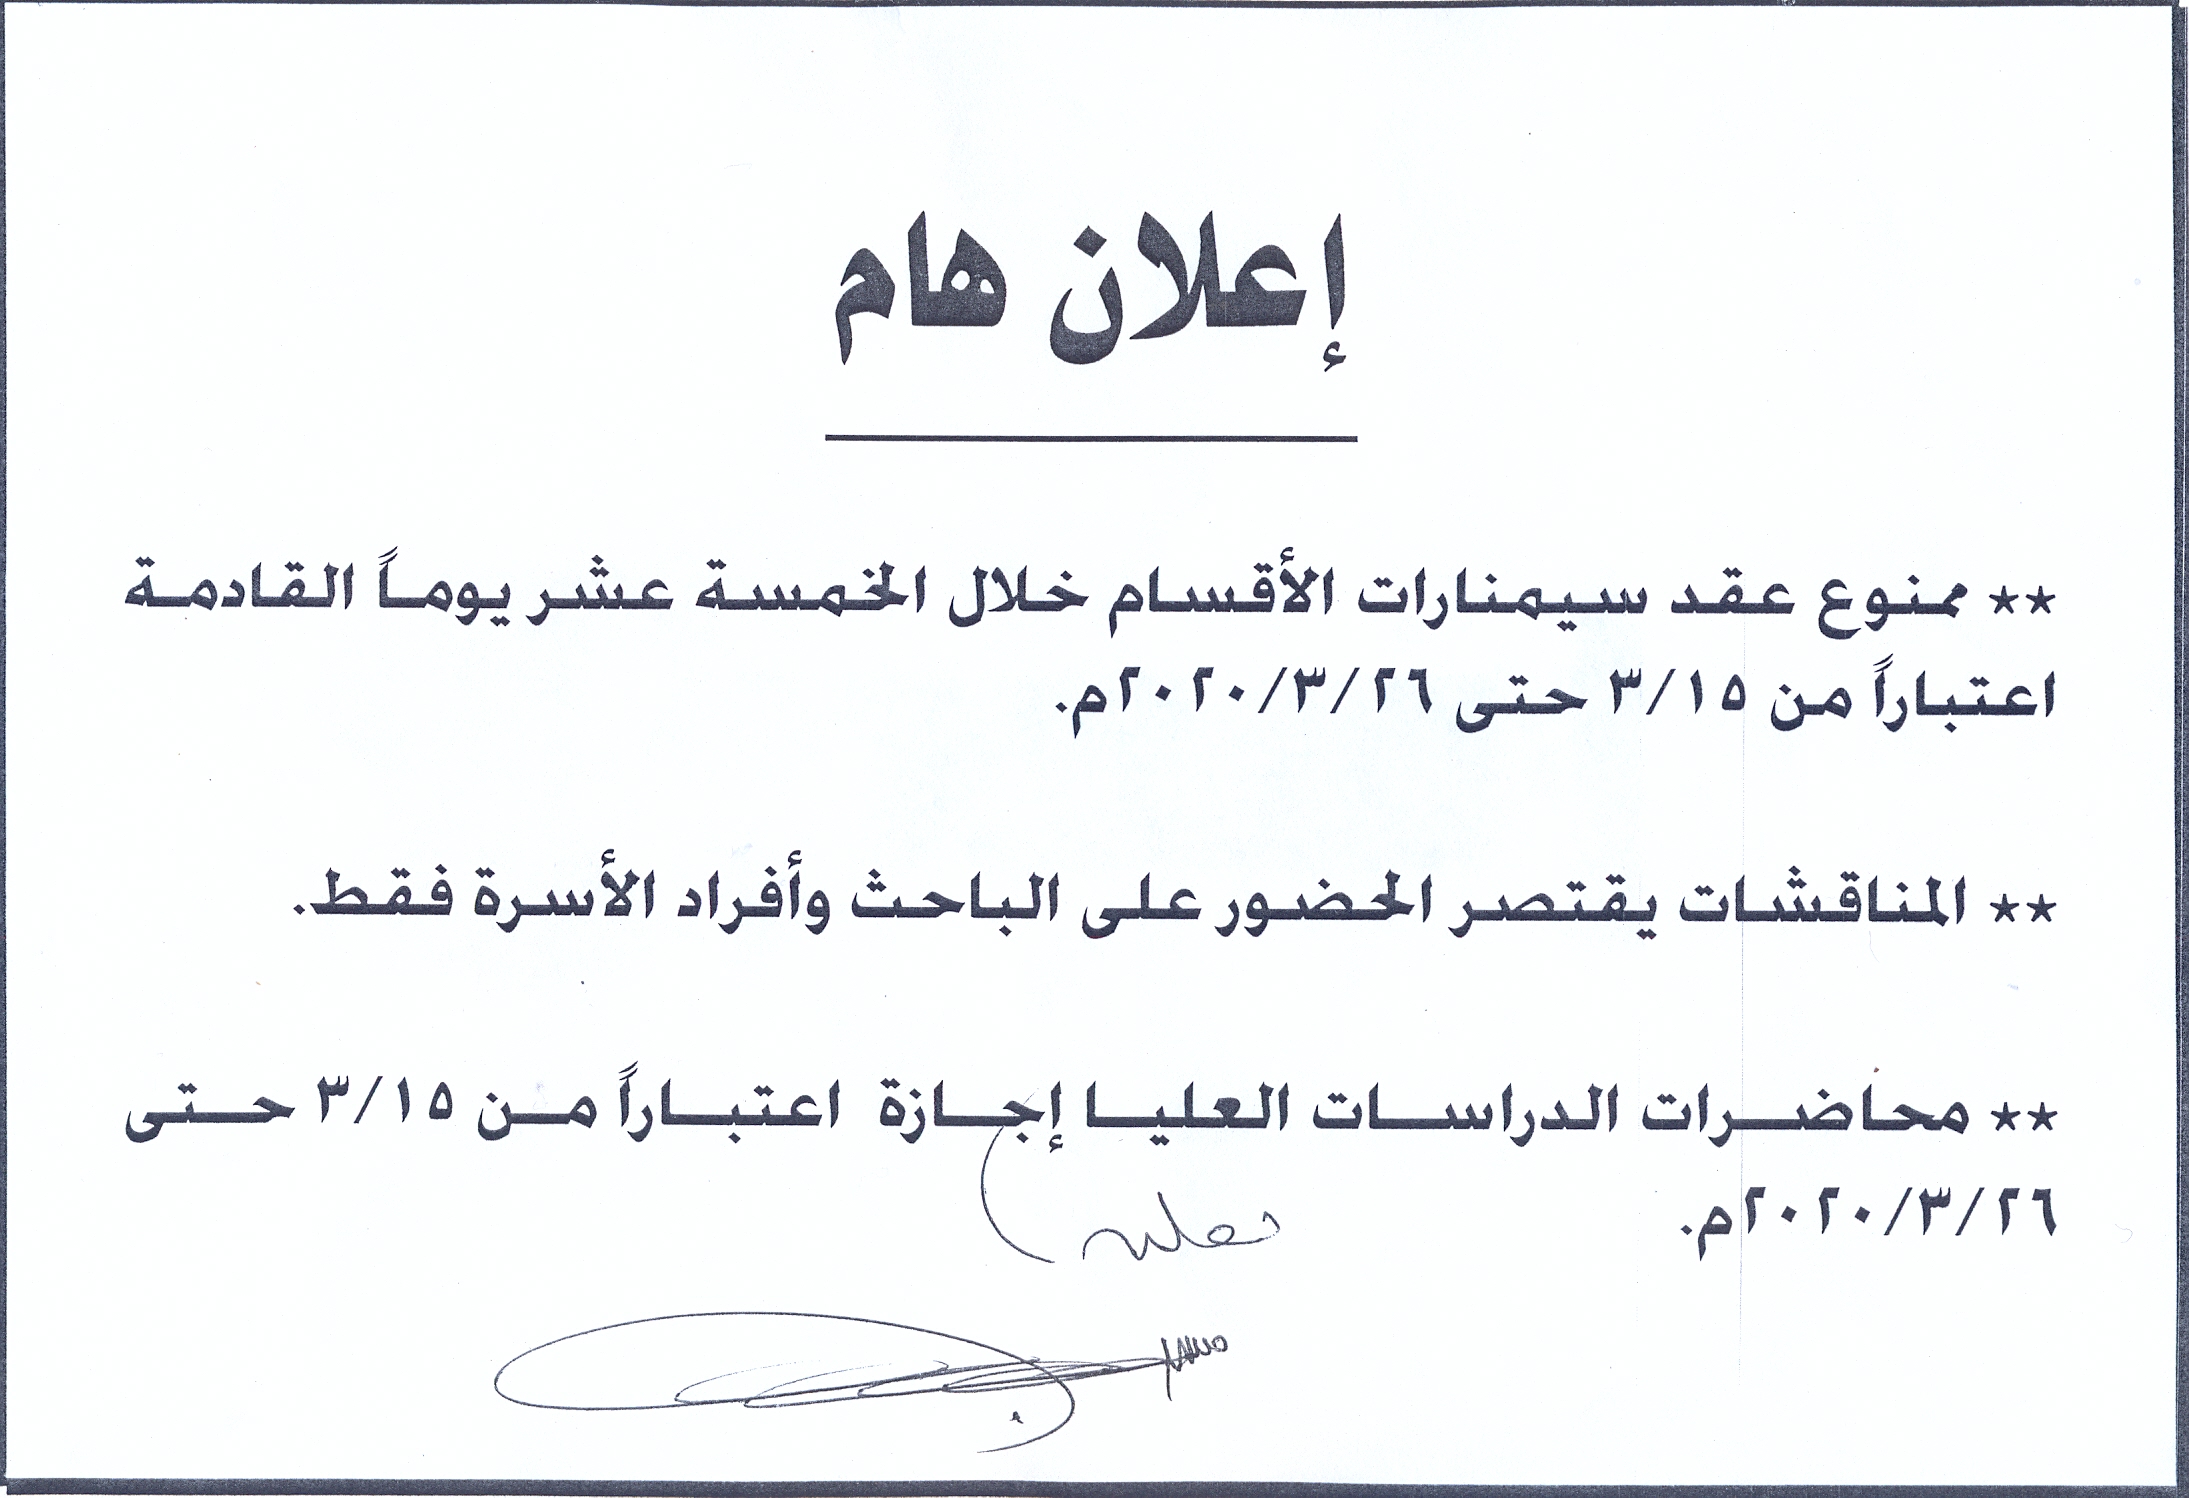 إعلان هام
** ممنوع عقد سيمنارات الأقسام خلال الخمسة عشر يوماً القادمة
اعتباراً من ٣/١٥ حتى ٢٠٢٠/٣/٢٦م.
** المناقشات يقتصر الحضور على الباحث وأفراد الأسرة فقط.
** محاضرات الدراسات العليا إجازة اعتباراً من ٣/١٥ حتى
٢٠٢٠/٣/٢٦م.